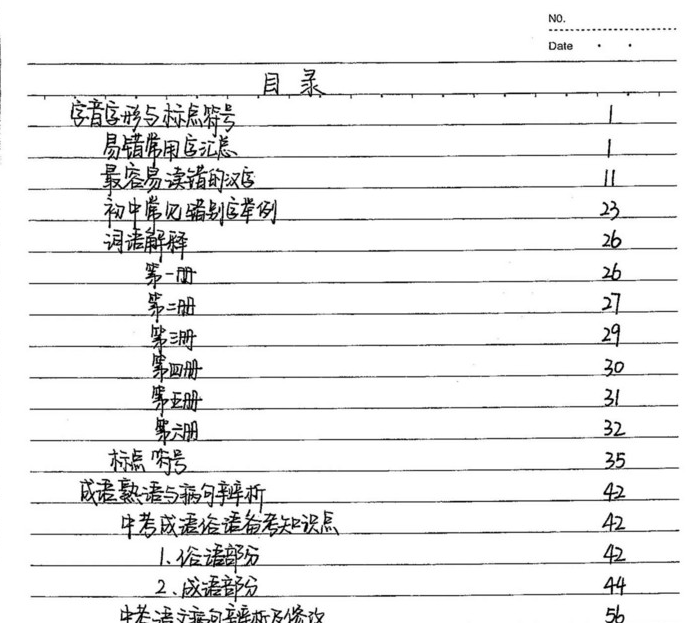 NO.
Date
目录
字音字形与标点符号 1
易错常用字汇总 1
最容易读错的汉字 11
初中常见错别字举例 23
词语解释 26
第一册 26
第二册 27
第三册 29
第四册 30
第五册 31
第六册 32
标点符号 35
成语熟语与病句辨析 42
中考成语俗语备考知识点 42
1、俗语部分 42
2、成语部分 44
中考语文病句辨析及修改 56